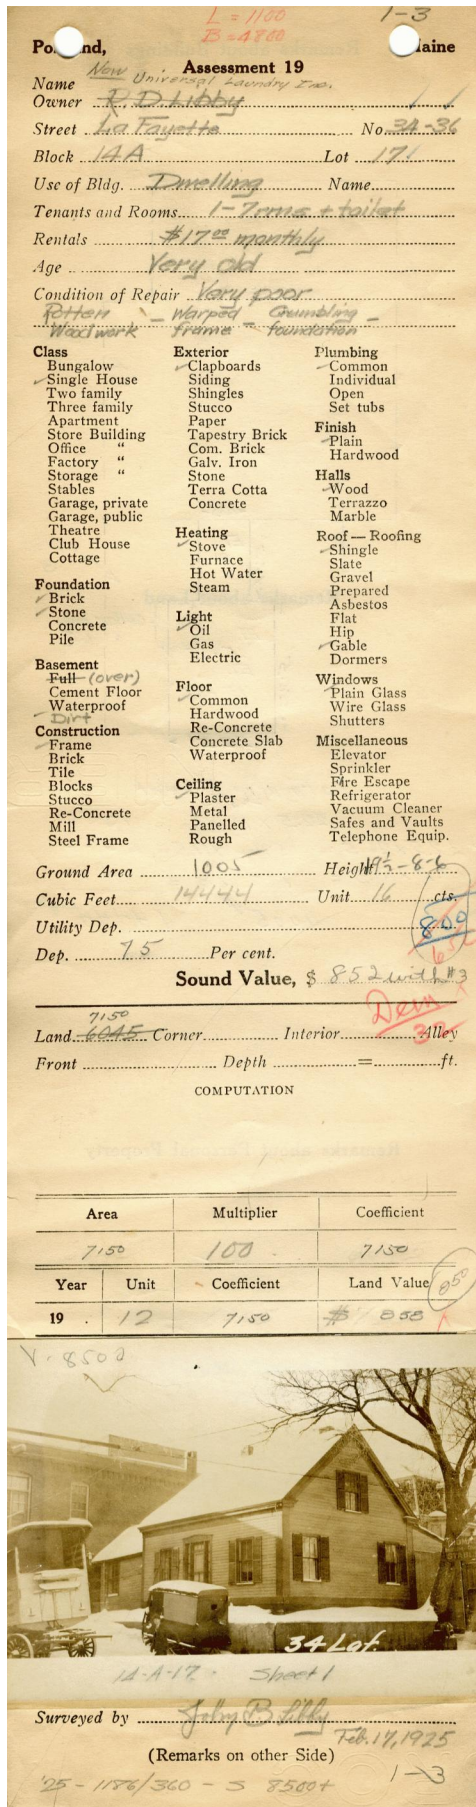 L = 1100
1-3
B = 4800
Portland, Maine
Assessment 19
Now Universal Laundry Inc.
Name
Owner R. D. Libby
Street La Fayette No. 34-36
Block 14A Lot 17
Use of Bldg. Dwelling Name
Tenants and Rooms 1-7 rms + toilet
Rentals $17.00 monthly
Age Very old
Condition of Repair Very poor
Rotten - Warped - Crumbling -
Woodwork frame - foundation
Class
Bungalow
✓Single House
Two family
Three family
Apartment
Store Building
Office "
Factory "
Storage "
Stables
Garage, private
Garage, public
Theatre
Club House
Cottage
Foundation
✓Brick
✓Stone
Concrete
Pile
Basement
Full (over)
Cement Floor
Waterproof
Dirt
Construction
✓Frame
Brick
Tile
Blocks
Stucco
Re-Concrete
Mill
Steel Frame
Exterior
✓Clapboards
Siding
Shingles
Stucco
Paper
Tapestry Brick
Com. Brick
Galv. Iron
Stone
Terra Cotta
Concrete
Heating
✓Stove
Furnace
Hot Water
Steam
Light
✓Oil
Gas
Electric
Floor
✓Common
Hardwood
Re-Concrete
Concrete Slab
Waterproof
Ceiling
✓Plaster
Metal
Panelled
Rough
Plumbing
✓Common
Individual
Open
Set tubs
Finish
✓Plain
Hardwood
Halls
✓Wood
Terrazzo
Marble
Roof — Roofing
✓Shingle
Slate
Gravel
Prepared
Asbestos
Flat
Hip
✓Gable
Dormers
Windows
✓Plain Glass
Wire Glass
Shutters
Miscellaneous
Elevator
Sprinkler
Fire Escape
Refrigerator
Vacuum Cleaner
Safes and Vaults
Telephone Equip.
Ground Area 1005 Height 19½-8-6
Cubic Feet 14444 Unit 16 cts.
Utility Dep. 800
Dep. 75 Per cent.
Sound Value, $ 852 with #3
7150
Land 6045 Corner Interior Alley
Front Depth = ft.
COMPUTATION
Area Multiplier Coefficient
7150 100 7150
Year Unit Coefficient Land Value 850
19 . 12 7150 $ 858
V-8500
34 Laf.
14-A-17- Sheet 1
Surveyed by John B Libby
Feb. 17, 1925
(Remarks on other Side)
1-3
'25 - 1186/360 - S 8500+